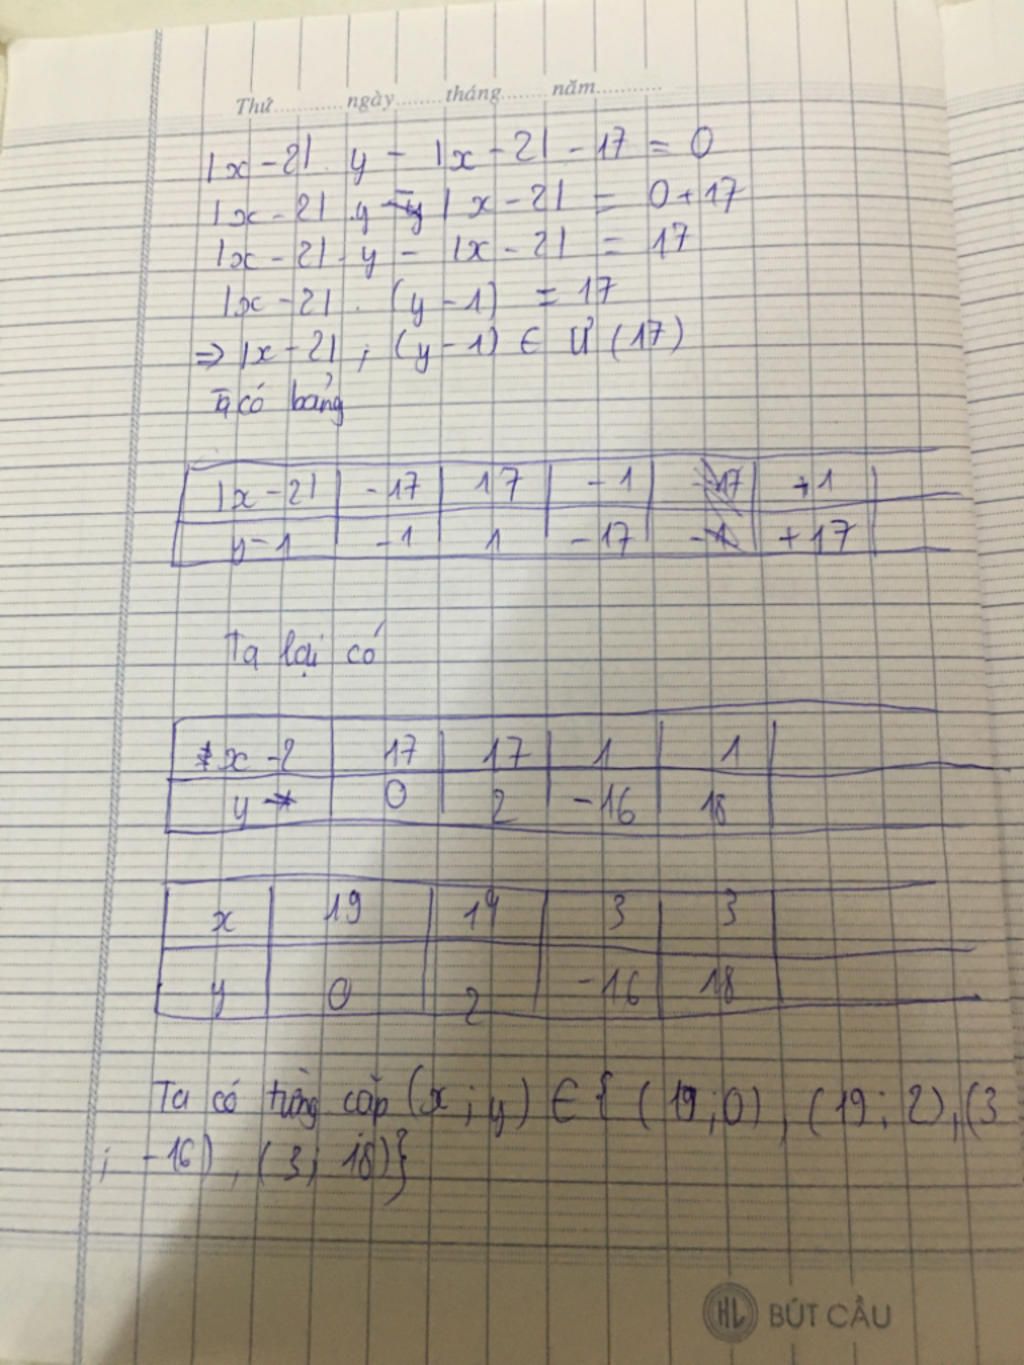 Thứ............ngày........tháng........năm............
|x-2|.y - |x-2| - 17 = 0
|x-2|.y - |x-2| = 0+17
|x-2|.y - |x-2| = 17
|x-2|.(y-1) = 17
=> |x-2| ; (y-1) ∈ Ư(17)
Ta có bảng
|x-2| -17 17 -1 +1
y-1 -1 1 -17 +17
Ta lại có
x-2 17 17 1 1
y 0 2 -16 18
x 19 19 3 3
y 0 2 -16 18
Ta có từng cặp (x;y) ∈ { (19;0), (19;2), (3
; -16), (3; 18)}
HL BÚT CẦU